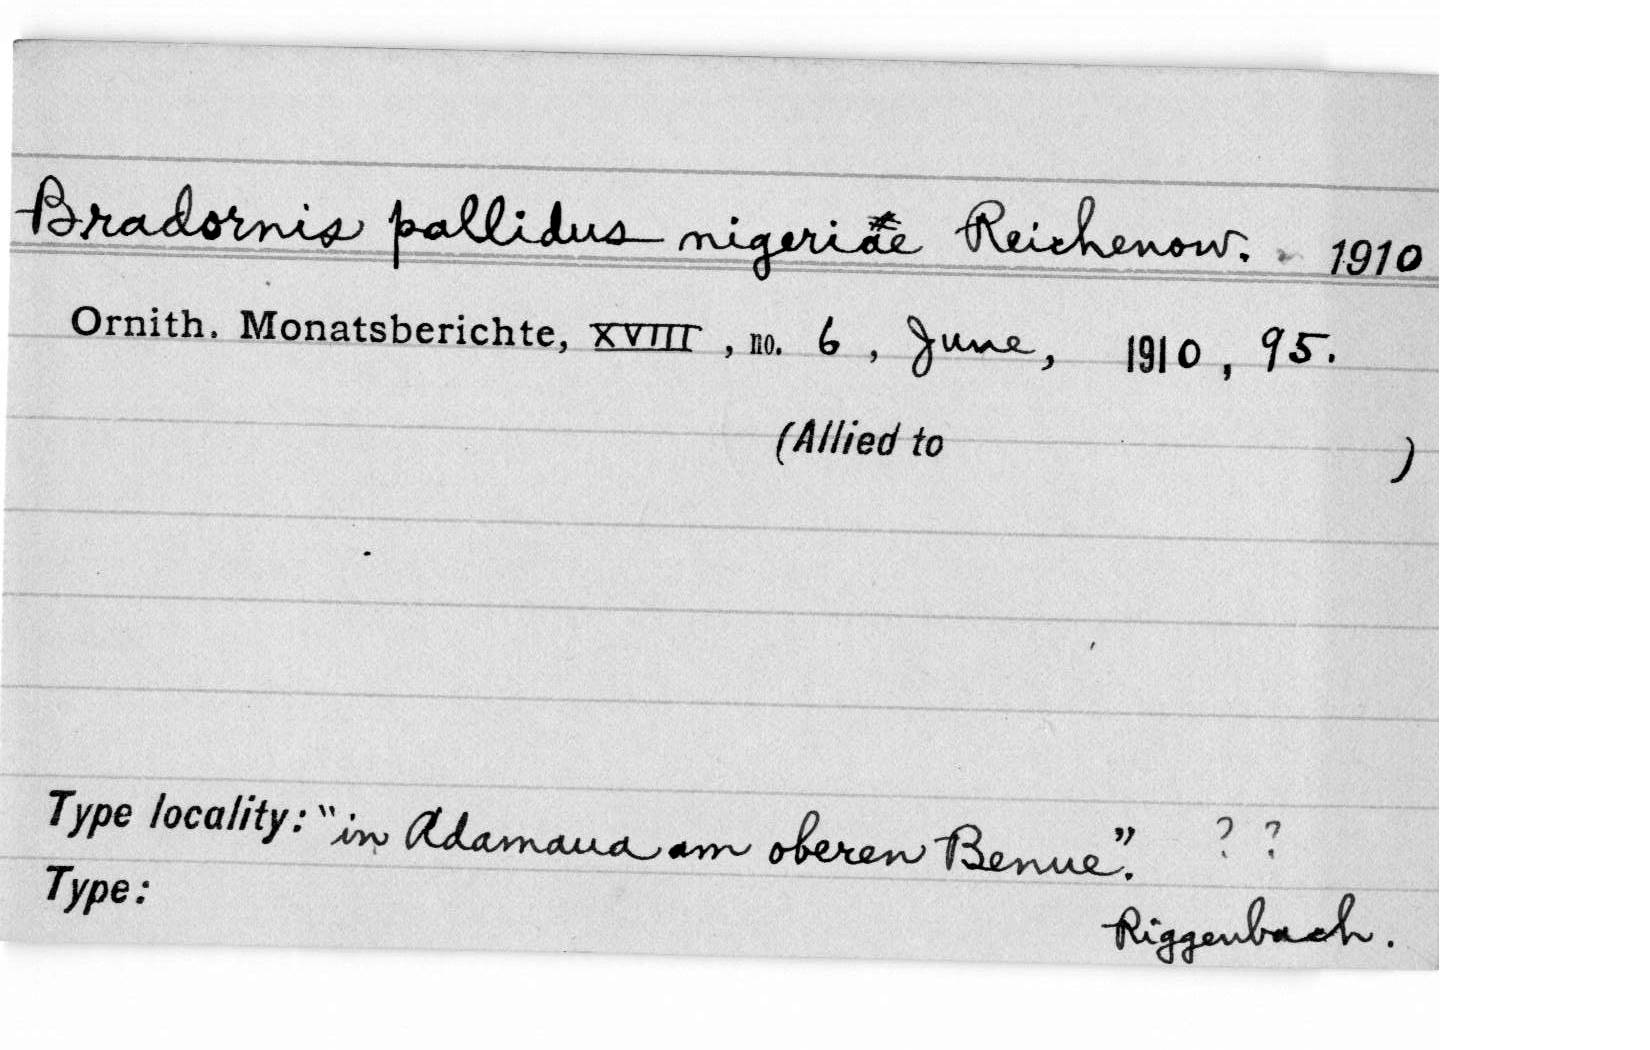 Bradornis pallidus nigeriae Reichenow. 1910
Ornith. Monatsberichte, XVIII, no. 6, June, 1910, 95.
(Allied to )
Type locality: "in Adamaua am oberen Benue". ? ?
Type:
Riggenbach.